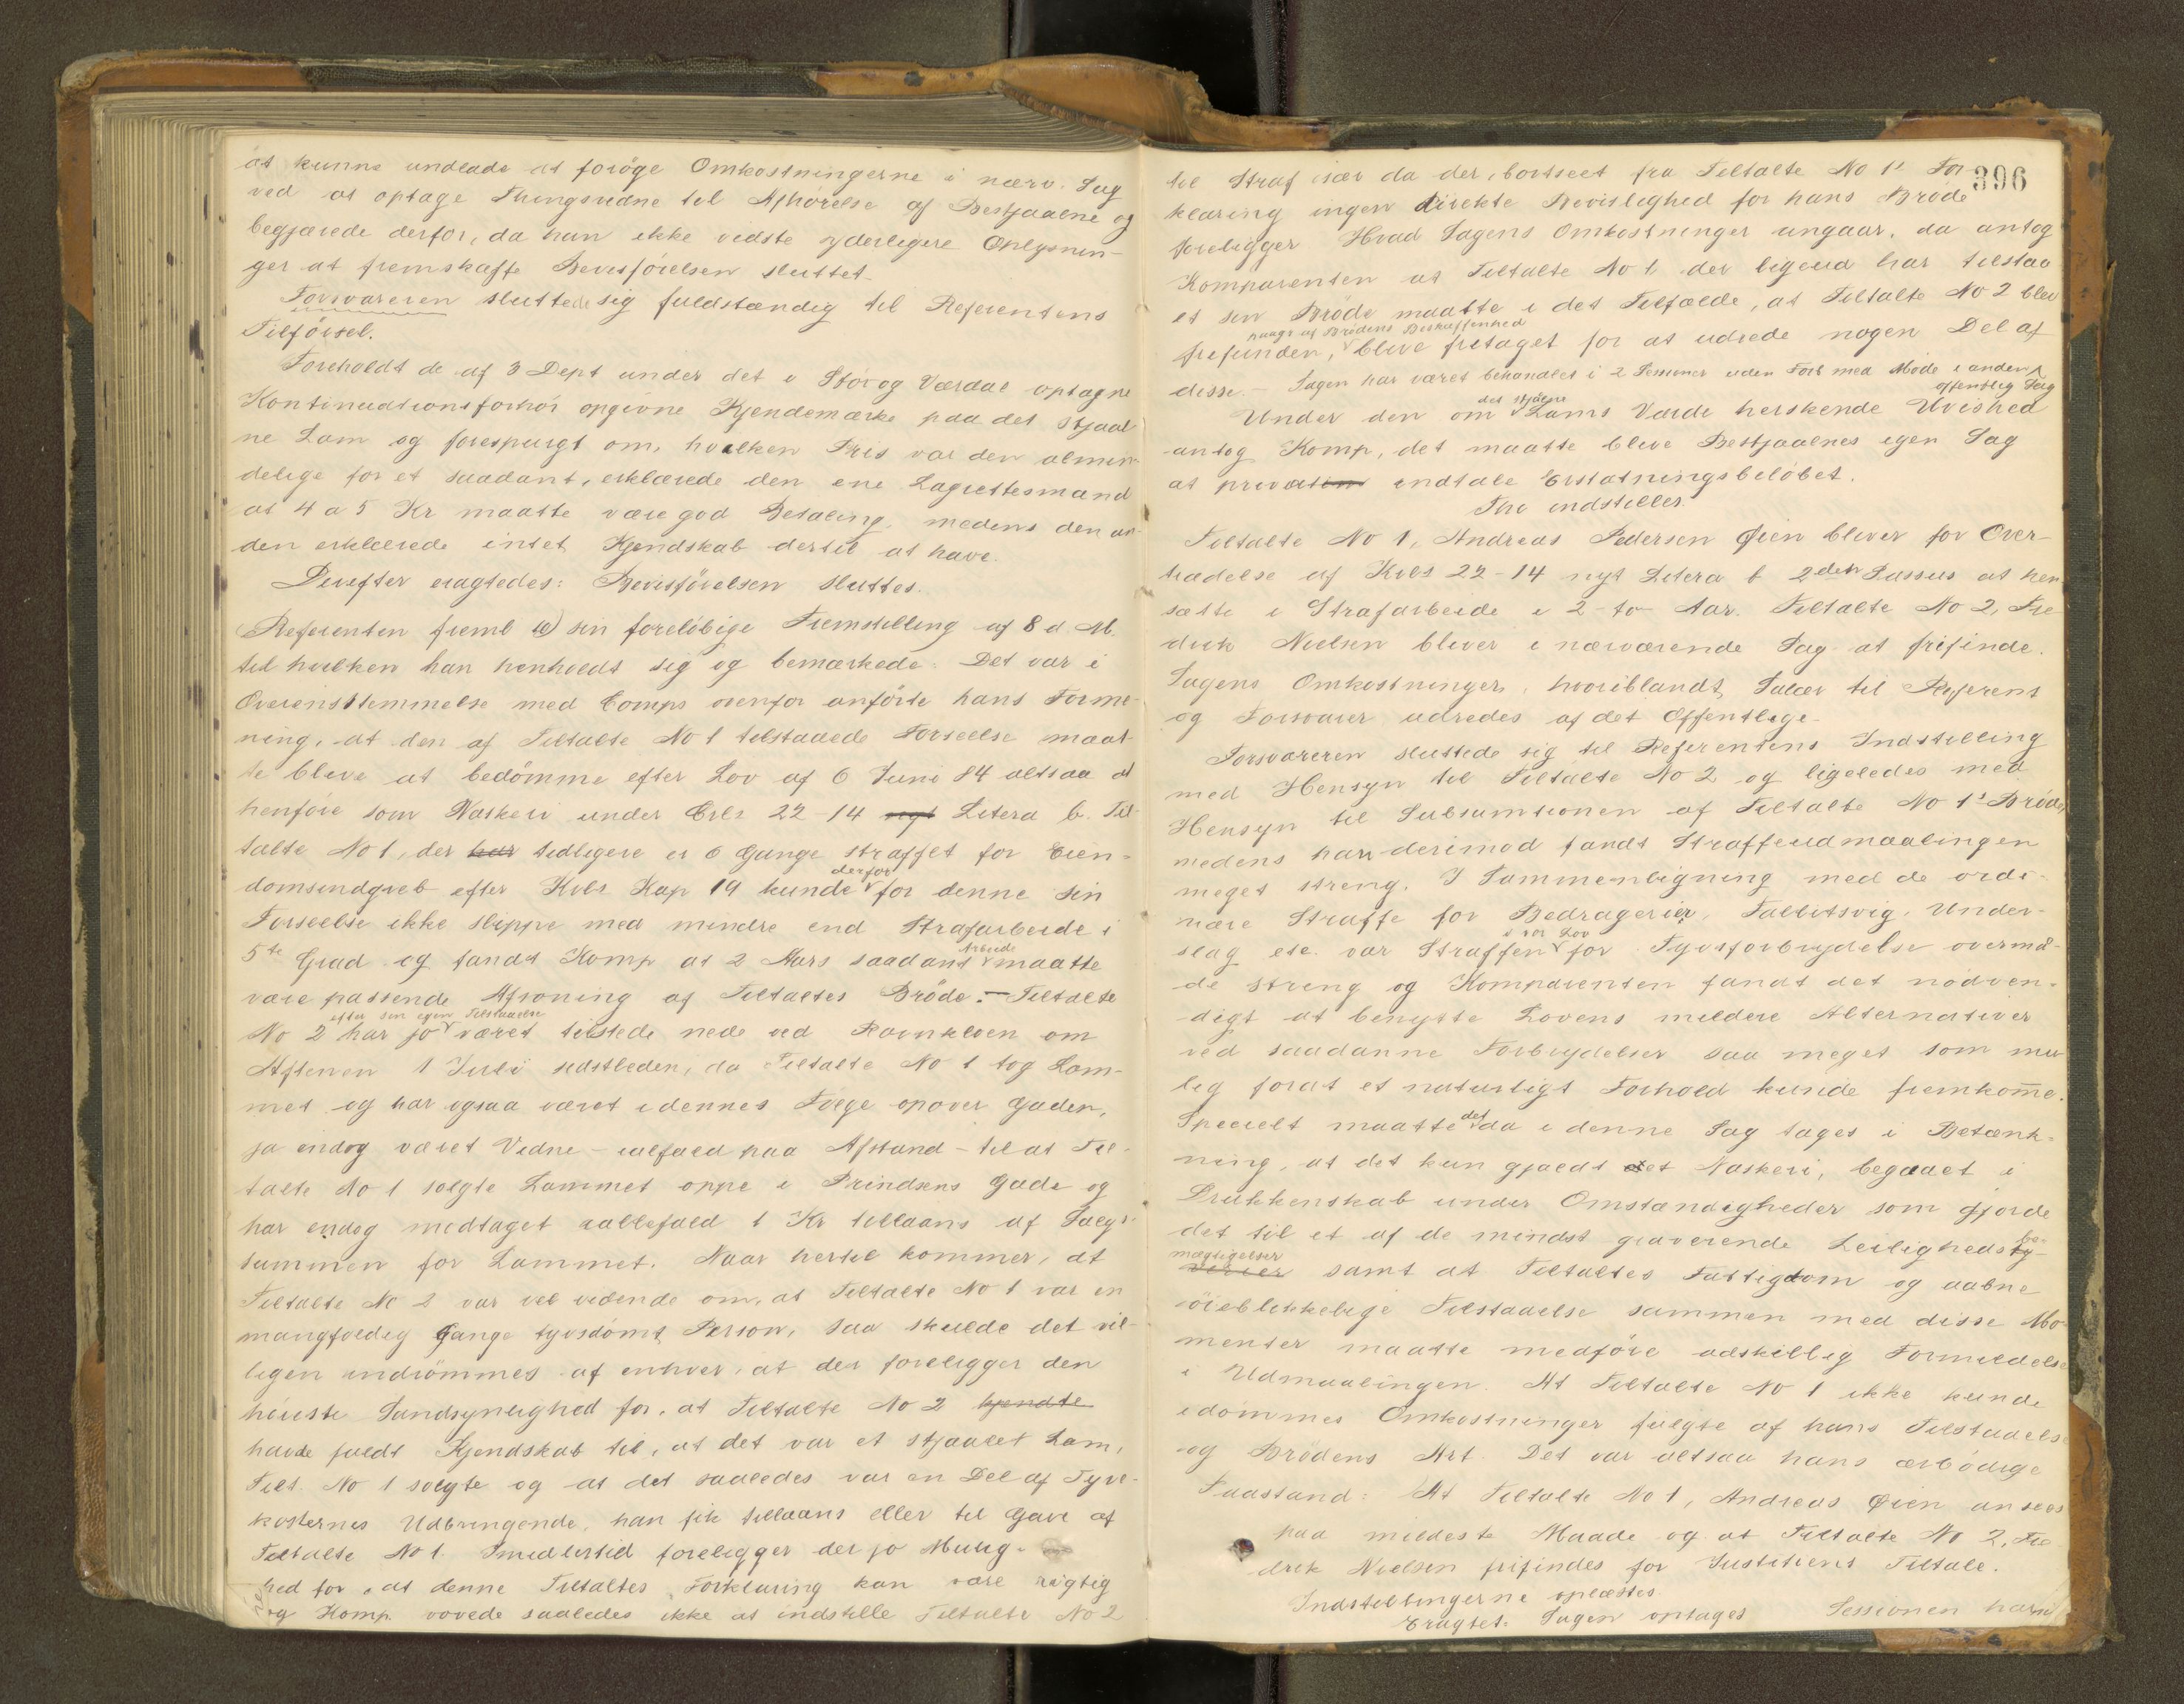 at kunne undlade at forøge Omkostningerne i nærv. Sag
ved at optage Thingsvidne til Afhørelse af Bestjaalne og
begjærede derfor, da han ikke vidste yderligere Oplysnin-
ger at fremskaffe Bevisførelsen sluttet.
Forsvareren sluttede sig fuldstændig til Referentens
Tilførsel.
Foreholdt de af 3 Dept under det i Stør og Værdal optagne
Kontinuationsforhør opgivne Kjendemærke paa det stjaal
ne Lam og forespurgt om, hvilken Pris var den almin-
delige for et saadant, erklærede den ene Lagrettesmand
at 4 a 5 Kr maatte være god Betaling, medens den an-
den erklærede intet Kjendskab dertil at have.
Derefter eragtedes: Bevisførelsen sluttes.
Referenten freml (e) sin foreløbige Fremstilling af 8 d. M.
til hvilken han henholdt sig og bemærkede: Det var i
Overensstemmelse med Comps ovenfor anførte hans Forme-
ning, at den af Tiltalte No 1 tilstaaede Forseelse maat-
te blive at bedømme efter Lov af 6 Juni 84 altsaa at
henføre som Naskeri under Crls 22-14 nyt Litera b. Til-
talte No 1, der har tidligere er 6 Gange straffet for Eien-
derfor
domsindgreb efter Kvls Kap 19 kunde for denne sin
Forseelse ikke slippe med mindre end Strafarbeide i
Arbeide
5te Grad og fandt Komp at 2 Aars saadant maatte
være passende Afsoning af Tiltaltes Brøde. – Tiltalte
efter sin egen Tilstaaelse
No 2 har jo været tilstede nede ved Ravnkloen om
Aftenen 1 Juli sidstleden, da Tiltalte No 1 tog Lam-
met og har ogsaa været i dennes Følge opover Gaden,
ja endog været Vidne – ialfald paa Afstand – til at Til-
talte No 1 solgte Lammet oppe i Prindsens Gade og
har endog modtaget iallefald 1 Kr tillaans af Salgs-
summen for Lammet. Naar hertil kommer, at
Tiltalte No 2 var vel vidende om, at Tiltalte No 1 var en
mangfoldig Gange tyvsdømt Person, saa skulde det vil-
ligen indrømmes af enhver, at der foreligger den
høieste Sandsynlighed for, at Tiltalte No 2 kjendte
havde fuldt Kjendskab til, at det var et stjaalet Lam,
Tilt. No 1 solgte og at det saaledes var en Del af Tyve-
kosternes Udbringende, han fik tillaans eller til Gave af
Tiltalte No 1. Imidlertid foreligger der jo Mulig-
hed for, at denne Tiltaltes Forklaring kan være rigtig
og Komp. vovede saaledes ikke at indstille Tiltalte No 2
396
til Straf især da der, bortseet fra Tiltalte No 1s For
klaring ingen direkte Bevislighed for hans Brøde
foreligger. Hvad Sagens Omkostninger angaar, da antog
Komparenten at Tiltalte No 1 der ligeud har tilstaa
et sin Brøde maatte i det Tilfælde, at Tiltalte No 2 blev
paagr af Brødens Beskaffenhed
frifunden, blive fritaget for at udrede nogen Del af
disse. – Sagen har været behandlet i 2 Sessioner uden Forb med Møde i anden
offentlig Sag
det stjaalne
Under den om Lams Værdi herskende Uvished
antog Komp, det maatte blive Bestjaalnes egen Sag
at privat indtale Erstatningsbeløbet.
Thi indstilles:
Tiltalte No 1, Andreas Pedersen Øien bliver for Over-
trædelse af Kvls 22-14 nyt Litera b 2den Passus at hen
sætte i Strafarbeide i 2 – to – Aar. Tiltalte No 2, Fre
drik Nielsen bliver i nærværende Sag at frifinde.
Sagens Omkostninger, hvoriblandt Salær til Referent
og Forsvarer udredes af det Offentlige.
Forsvareren sluttede sig til Referentens Indstilling
med Hensyn til Tiltalte No 2 og ligeledes med
Hensyn til Subsumtionen af Tiltalte No 1s Brøde,
medens han derimod fandt Straffeudmaalingen
meget streng. I Sammenligning med de ordi-
nære Straffe for Bedragerier, Fallitsvig, Under-
i vor Lov
slag etc. var Straffen for Tyvsforbrydelse overmå-
de streng og Komparenten fandt det nødven-
digt at benytte Lovens mildere Alternativer
ved saadanne Forbrydelser saa meget som mu
lig fordi et naturligt Forhold kunde fremkomme.
det
Specielt maatte da i denne Sag tages i Betænk-
ning, at det kun gjældt et Naskeri, begaaet i
Drukkenskab under Omstændigheder som gjorde
be-
det til et af de mindst graverende Leilighedsty-
mægtigelser
verier samt at Tiltaltes Fattigdom og aabne
øieblikkelige Tilstaaelse sammen med disse Mo-
menter maatte medføre adskillig Formildelse
i Udmaalingen. At Tiltalte No 1 ikke kunde
idømmes Omkostninger fulgte af hans Tilstaaelse
og Brødens Art. Det var altsaa hans ærbødige
Paastand: At Tiltalte No 1, Andreas Øien ansees
paa mildeste Maade og at Tiltalte No 2, Fre
drik Nielsen frifindes for Justitiens Tiltale.
Indstillingerne oplæstes.
Eragtet: Sagen optages Sessionen hævet